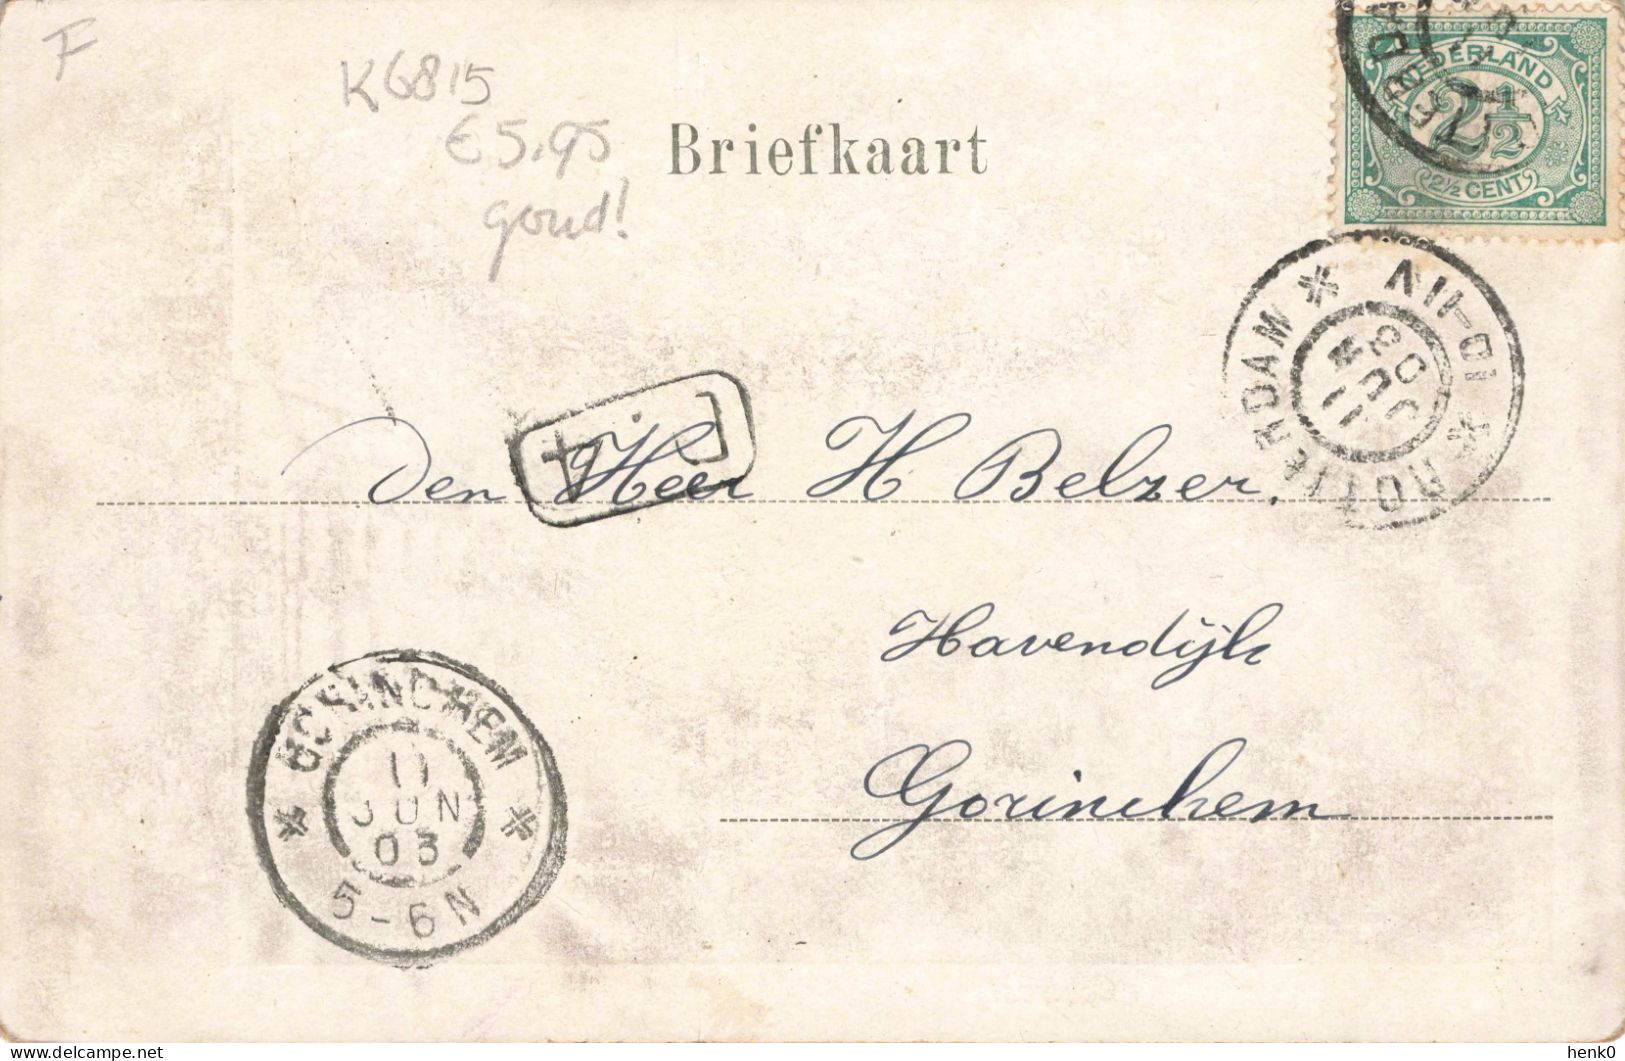 F
K6815
€5,95
goud!
Briefkaart
NEDERLAND
2½
2½ CENT
ROTTERDAM
10-11V
11 JUN 03
Den Heer H Belzer.
Havendijk
Gorinchem
GORINCHEM
11
JUN
03
5-6N
henk0